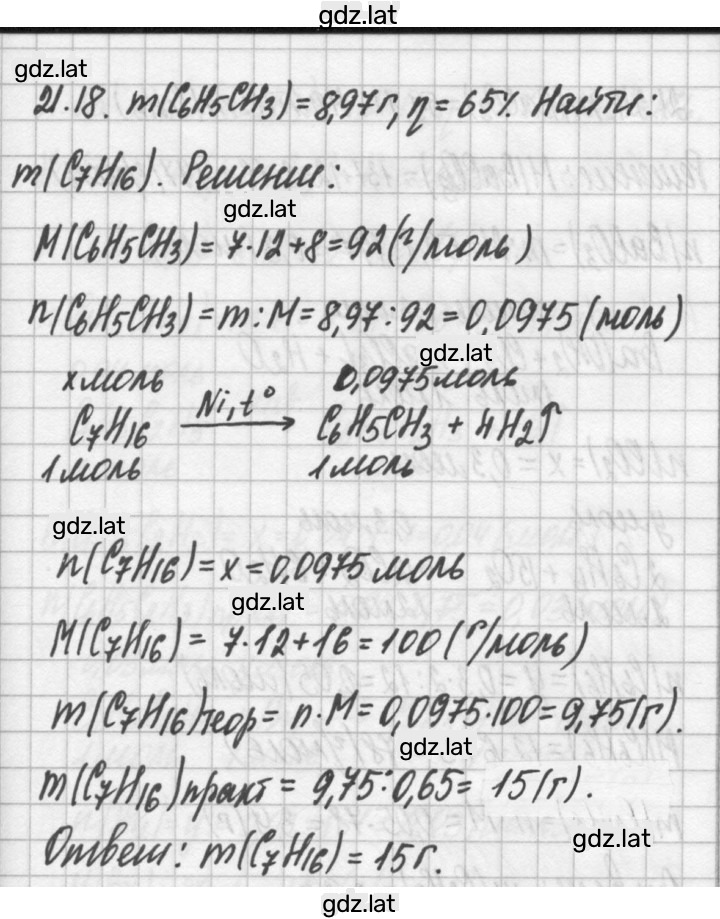 gdz.lat
gdz.lat
21.18. m(C₆H₅CH₃) = 8,97 г, η = 65%. Найти:
m(C₇H₁₆). Решение:
gdz.lat
M(C₆H₅CH₃) = 7·12+8 = 92 (г/моль)
n(C₆H₅CH₃) = m : M = 8,97 : 92 = 0,0975 (моль)
gdz.lat
x моль 0,0975 моль
C₇H₁₆ Ni, t° → C₆H₅CH₃ + 4H₂↑
1 моль 1 моль
gdz.lat
n(C₇H₁₆) = x = 0,0975 моль
gdz.lat
M(C₇H₁₆) = 7·12+16 = 100 (г/моль)
m(C₇H₁₆)теор = n·M = 0,0975·100 = 9,75 (г).
gdz.lat
m(C₇H₁₆)практ = 9,75 : 0,65 = 15 (г).
gdz.lat
Ответ: m(C₇H₁₆) = 15 г.
gdz.lat